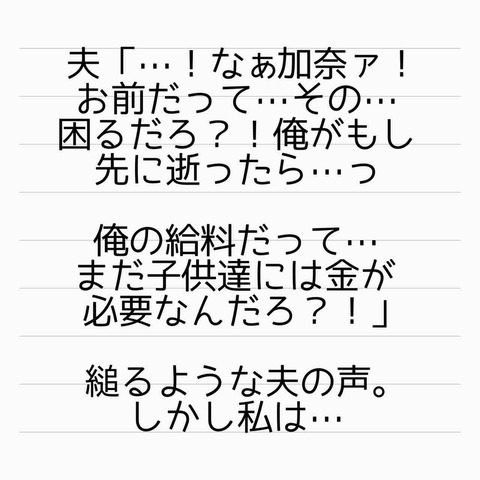 夫「…！なぁ加奈ァ！
お前だって…その…
困るだろ？！俺がもし
先に逝ったら…っ
俺の給料だって…
まだ子供達には金が
必要なんだろ？！」
縋るような夫の声。
しかし私は…